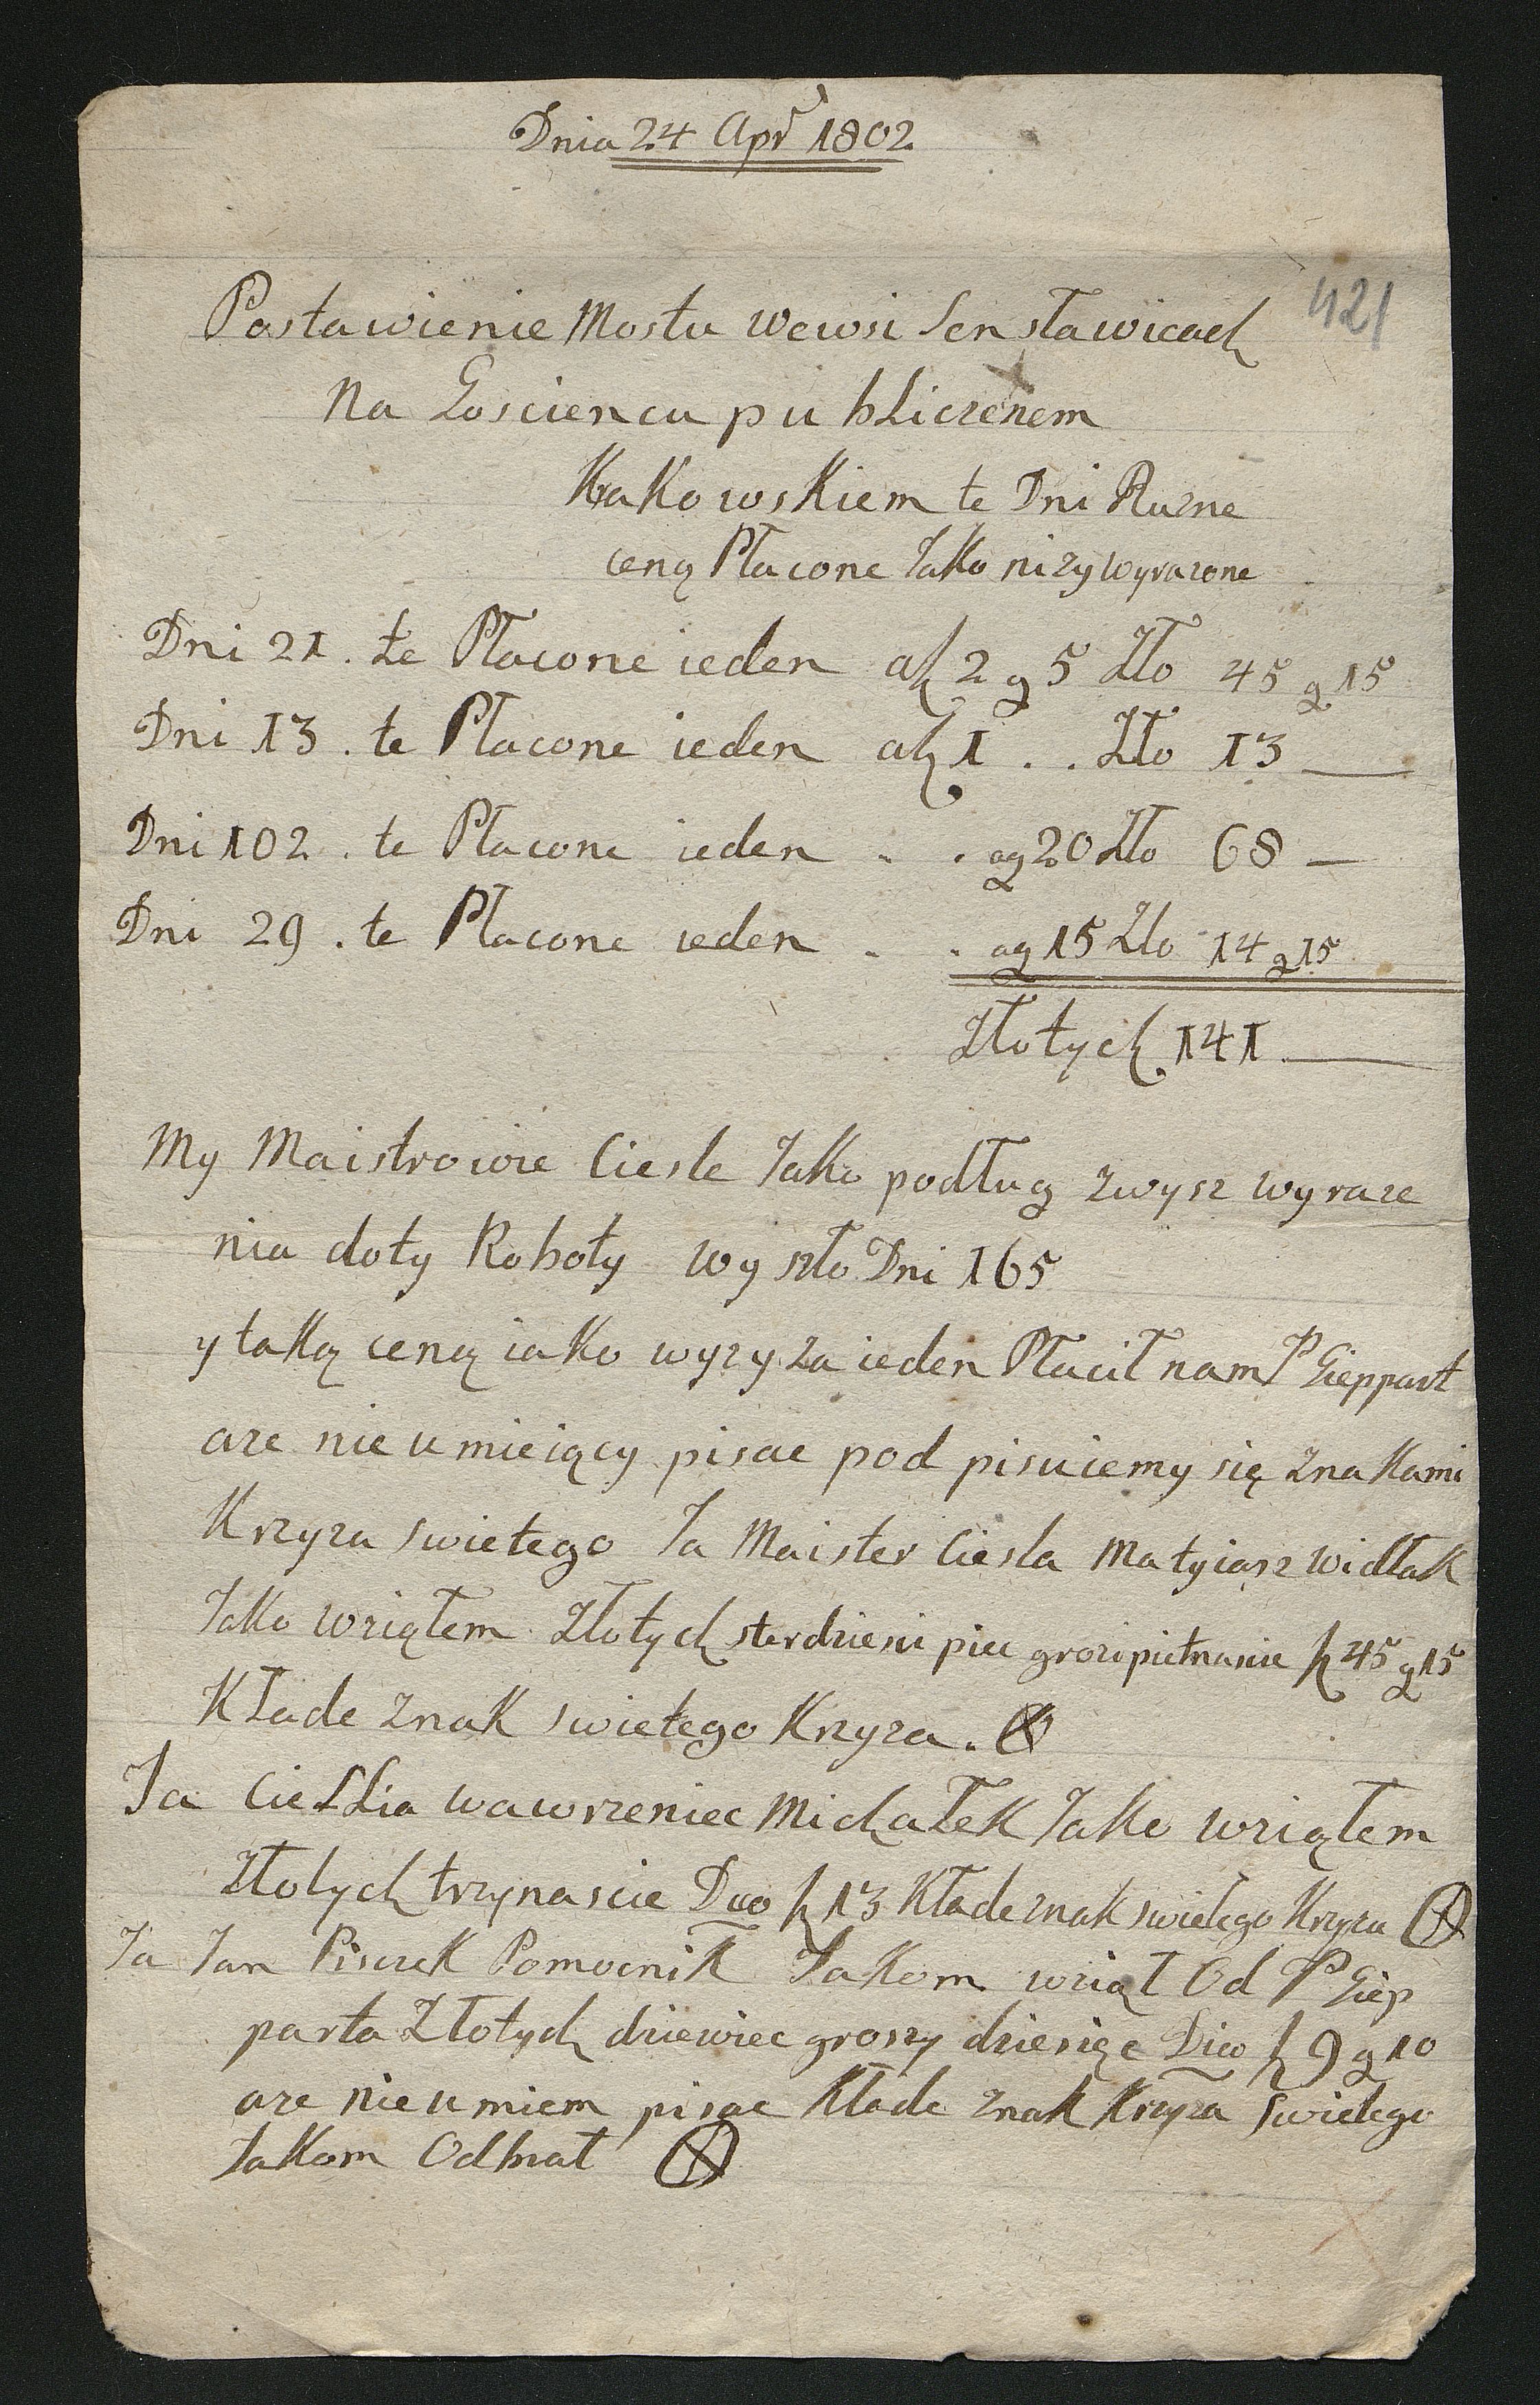 Dnia 24 Apr 1802
421
Postawienie Mostu wewsi Senstawicach
Na Gosciencu publicznem
Krakowskiem te Dni Ruzne
ceną Płacone Jako nizy wyrazone
Dni 21. te Płacone ieden a 2 g 5 Zło 45 g 15
Dni 13. te Płacone ieden a 1 . . Zło 13 —
Dni 102. te Płacone ieden . . ag 20 Zło 68 —
Dni 29. te Płacone ieden . . ag 15 Zło 14 g 15
Złotych 141 —
My Maistrowie Ciesle Jako podług zwysz wyraze
nia doty Roboty wyszło Dni 165
y taką ceną iako wyzy za ieden Płacił nam P Gieppart
aze nie umieiący pisac pod pisuiemy się znakami
Krzyza swietego Ja Maister Ciesla Matyiasz widłak
Jako wziąłem Złotych sterdziesci piec groszi pietnascie 45 g 15
Kłade znak swietego Krzyza.
Ja Cieslia wawrzeniec Michałek Jako wziąłem
Złotych trzynascie Dico 13 Kłade znak swietego Krzyza
Ja Jan Piszczek Pomocnik Jakom wziął Od P Giep
parta Złotych dziewiec groszy dziesięc Dico 9 g 10
aze nie umiem pisac Kłade znak Krzyza swietego
Jakom Odbrał